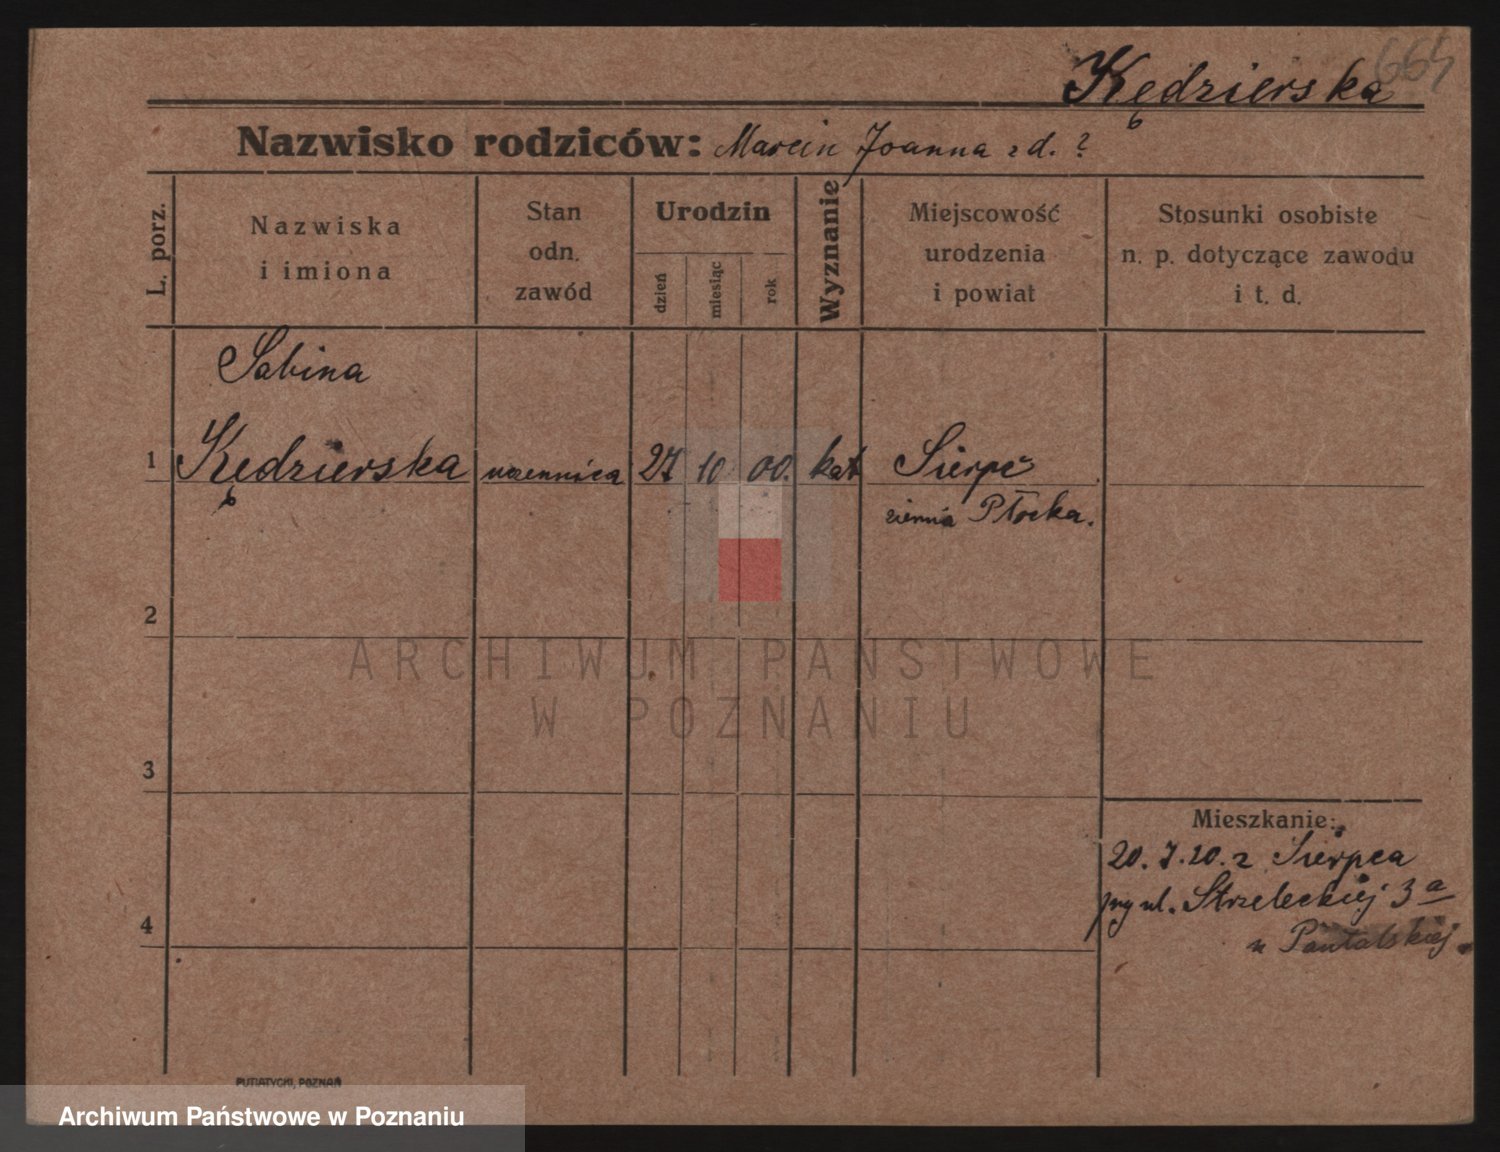 664
Kędzierska
Nazwisko rodziców: Marcin Joanna z d. ?
L. porz.
Nazwiska
i imiona
Stan
odn.
zawód
Urodzin
dzień
miesiąc
rok
Wyznanie
Miejscowość
urodzenia
i powiat
Stosunki osobiste
n. p. dotyczące zawodu
i t. d.
Sabina
1 Kędzierska uczennica 27 10 00. kat Sierpc
ziemia Płocka.
2
ARCHIWUM PAŃSTWOWE
W POZNANIU
3
Mieszkanie:
20. 7. 20. z Sierpca
ul. Strzeleckiej 3 a
4
u
PUTIATYCKI, POZNAŃ
Archiwum Państwowe w Poznaniu